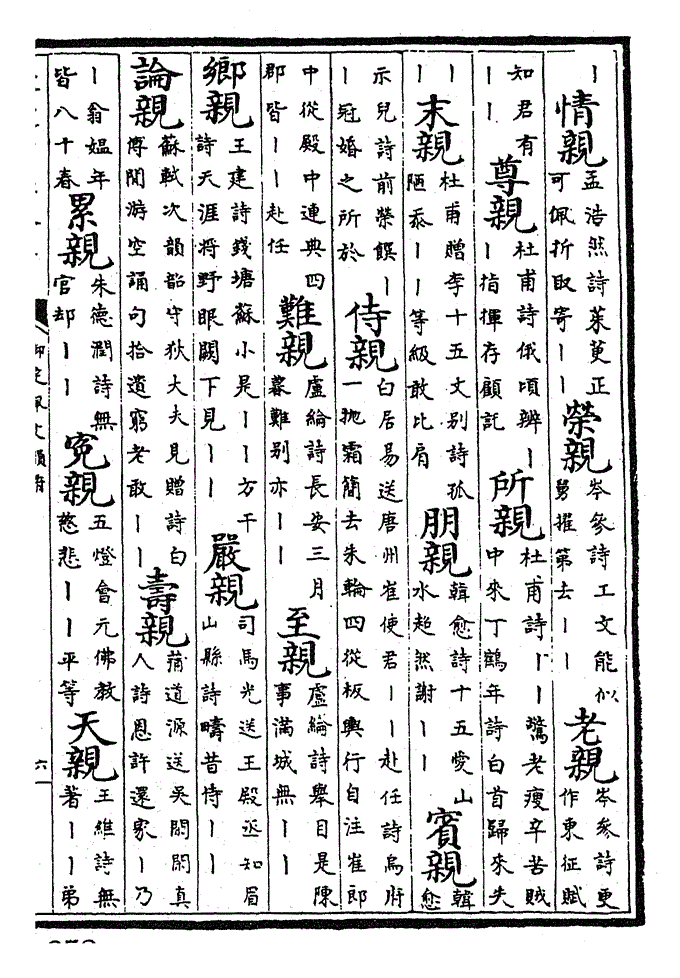 ｜情親孟浩然詩茱萸正可佩折取寄｜｜榮親岑參詩工文能似舅擢第去｜｜老親岑參詩更作東征賦
知君有｜｜尊親杜甫詩俄頃辨｜｜指揮存顧託所親杜甫詩｜｜驚老瘦辛苦賊中來丁鶴年詩白首歸來失
｜｜末親杜甫贈李十五丈別詩孤陋忝｜｜等級敢比肩朋親韓愈詩十五愛山水超然謝｜｜賓親韓愈
示兒詩前榮饌｜｜冠婚之所於侍親白居易送唐州崔使君｜｜赴任詩烏府一抛霜簡去朱輪四從板輿行自注崔郎
中從殿中連典四郡皆｜｜赴任難親盧綸詩長安三月暮難別亦｜｜至親盧綸詩舉目是陳事滿城無｜｜
鄉親王建詩錢塘蘇小是｜｜方干詩天涯將野眼闕下見｜｜嚴親司馬光送王殿丞知眉山縣詩疇昔侍｜｜
論親蘇軾次韻韶守狄大夫見贈詩白傅閒游空誦句拾遺窮老敢｜｜壽親蒲道源送吳閒閒真人詩恩許還家｜乃
｜翁媼年皆八十春累親朱德潤詩無官却｜｜冤親五燈會元佛教慈悲｜｜平等天親王維詩無著｜｜弟
六